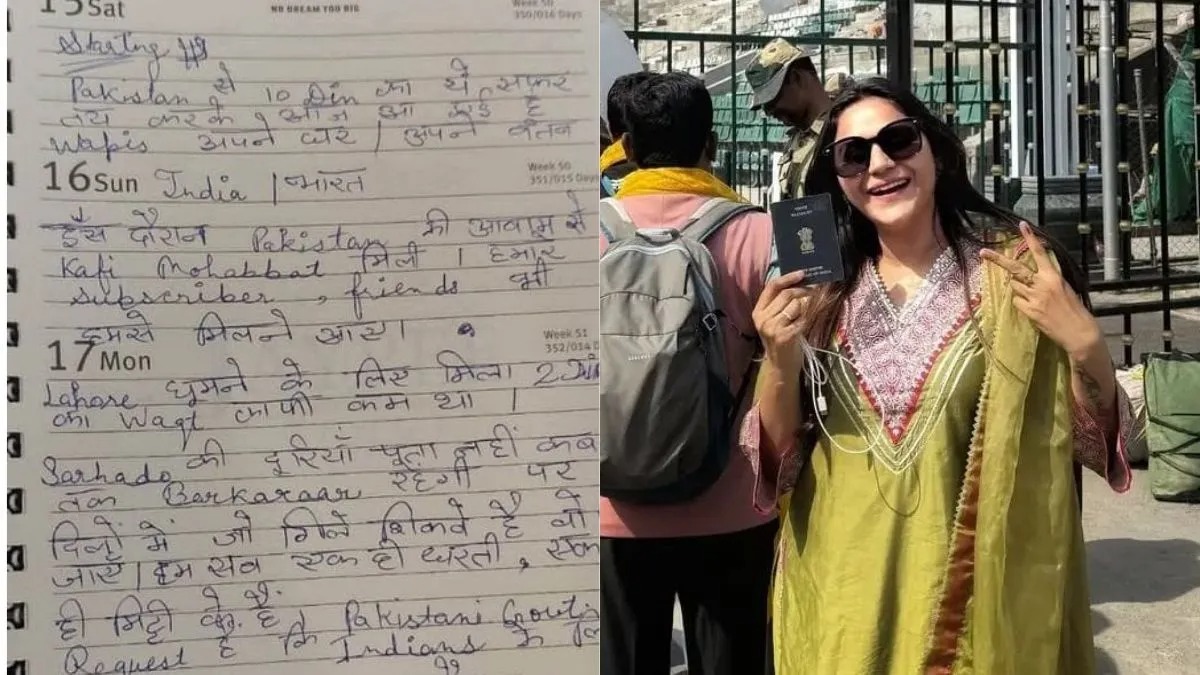 15 Sat
NO DREAM TOO BIG
Week 50
350/016 Days
Starting
Pakistan से 10 Din का ये सफर
तय करके आज आ गई है
Wapis अपने घर / अपने वतन
16 Sun
India / भारत
Week 50
351/015 Days
इस दौरान Pakistan की आवाम से
Kafi Mohabbat मिली । हमारे
subscriber, friends भी
हमसे मिलने आए।
17 Mon
Week 51
352/014 D
Lahore घूमने के लिए मिला 2 Din
का Waqt काफी कम था ।
Sarhado की दूरियाँ पता नहीं कब
तक Barkaraar रहेगी पर
दिलों में जो गिले शिकवे है वो
जाए । हम सब एक ही धरती, एक
ही मिट्टी के है.
Pakistani Govt
Request है कि Indians के
PASSPORT